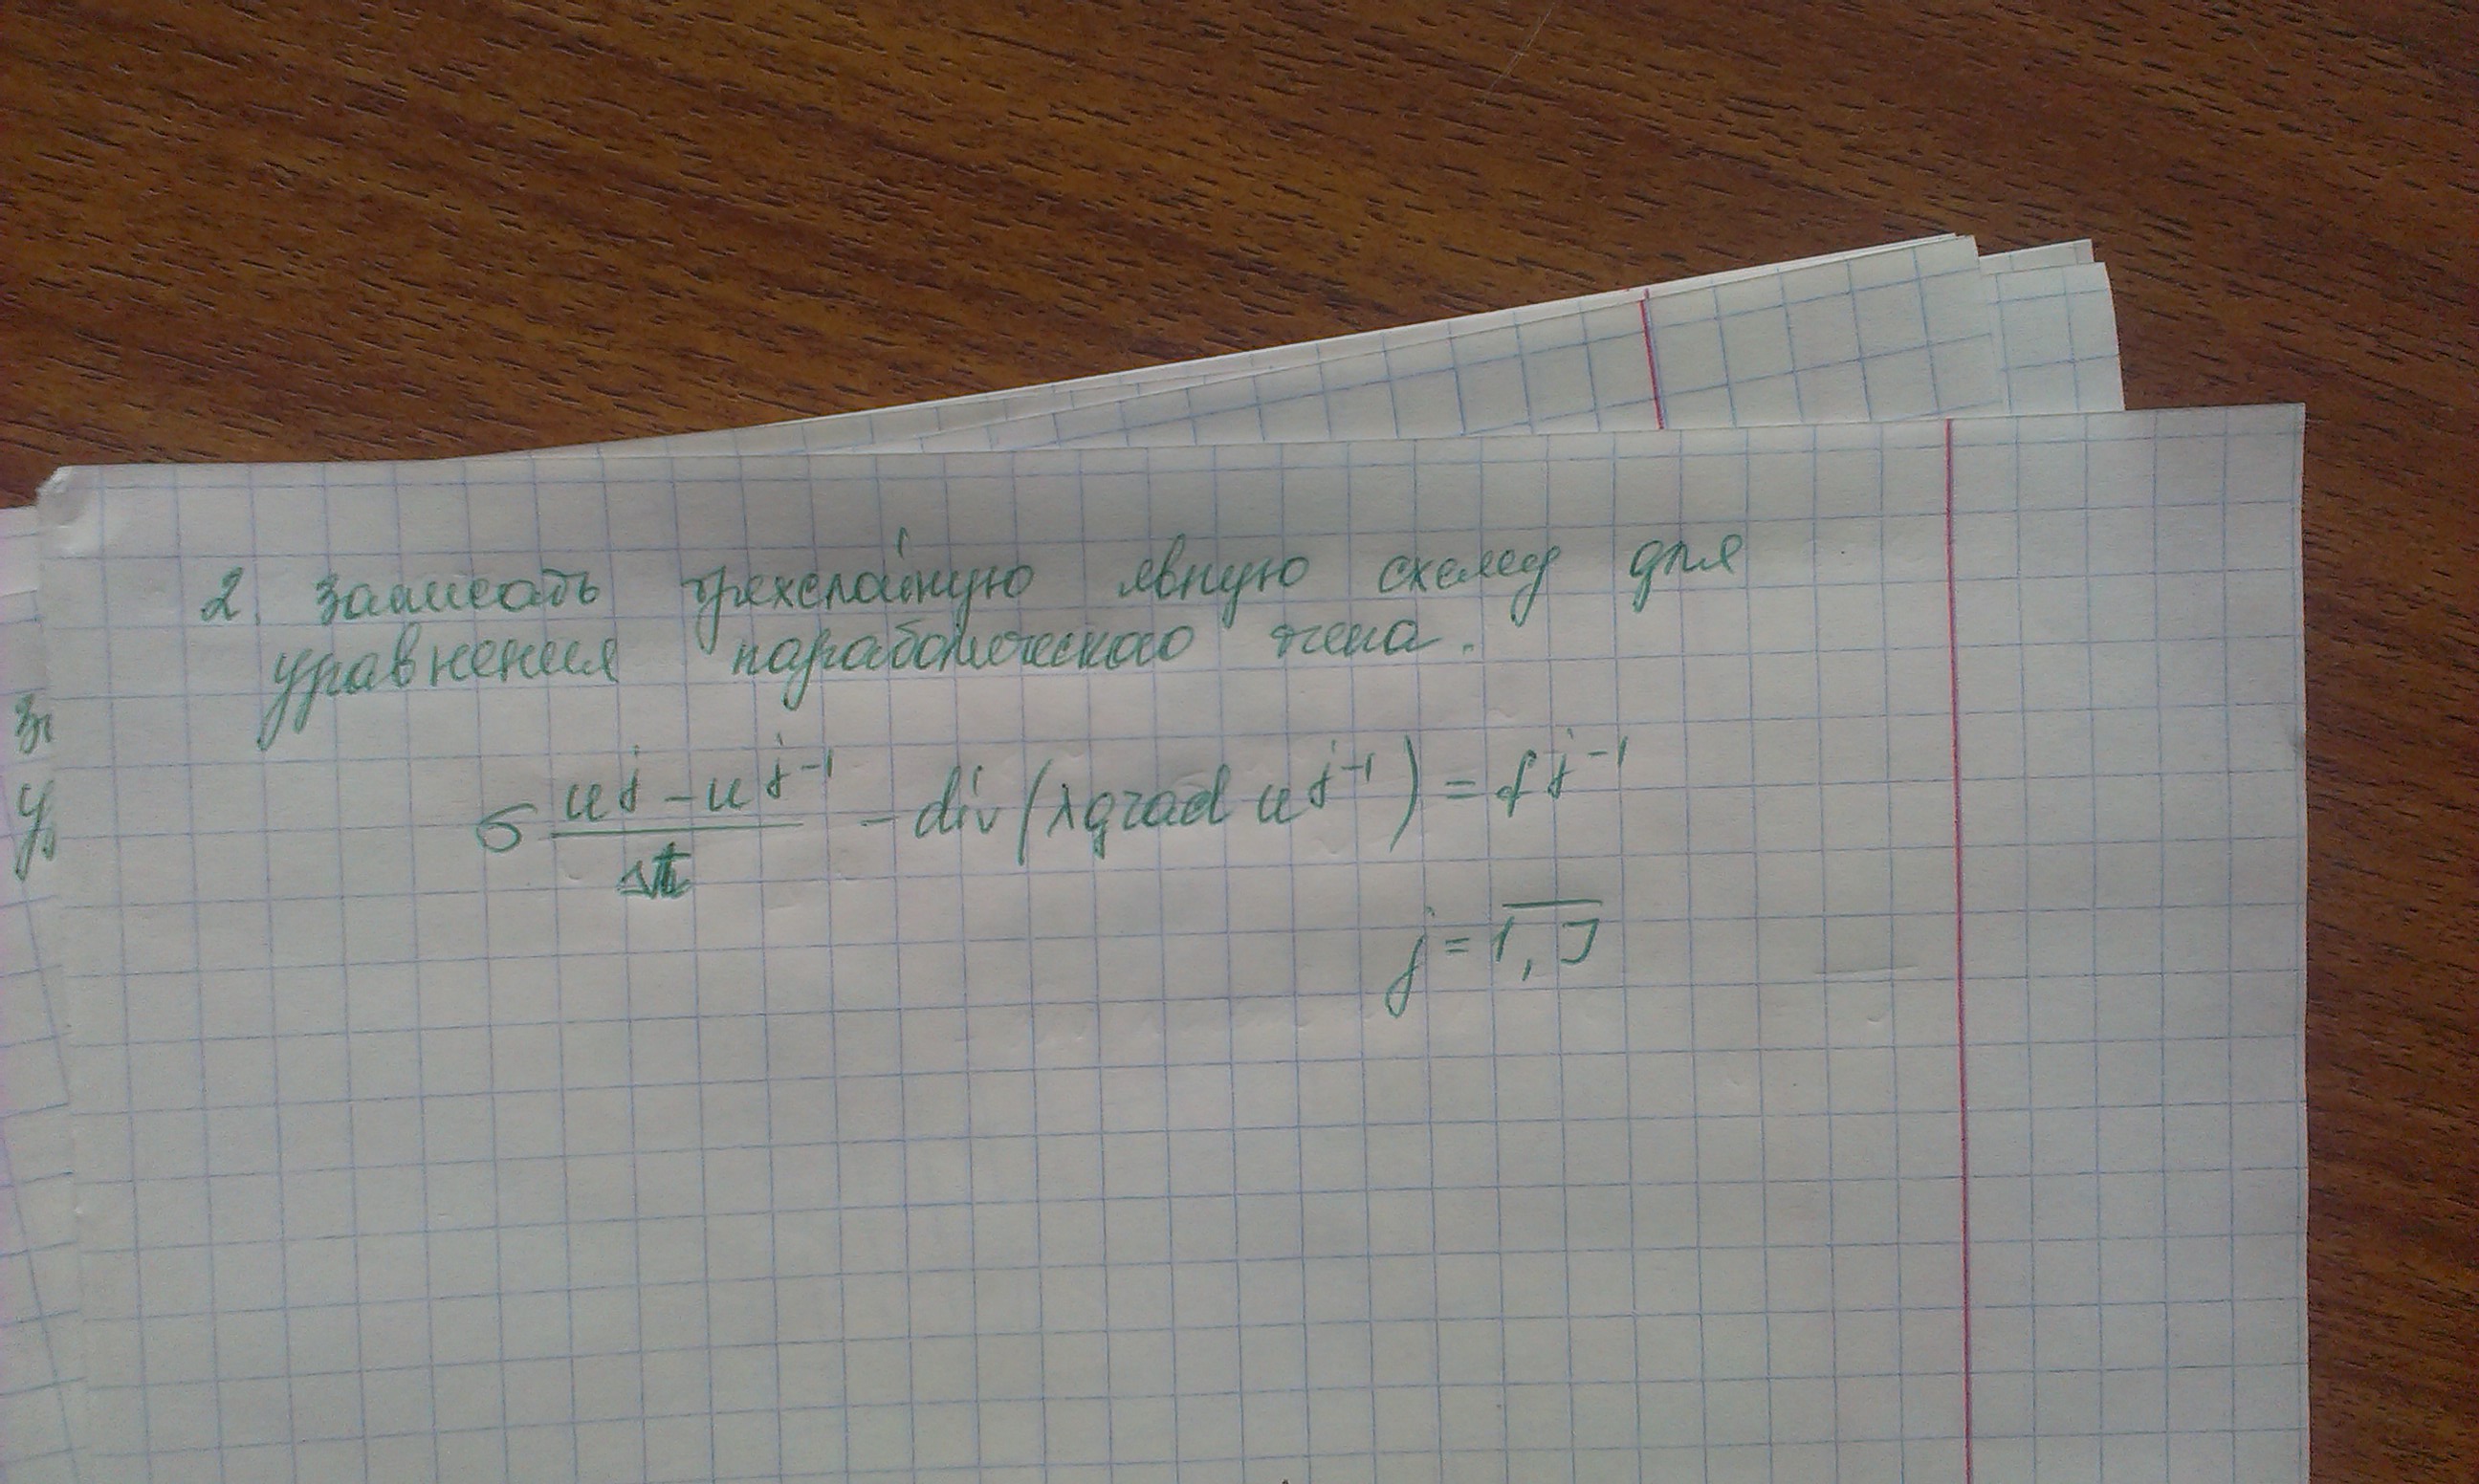 2. Записать трехслойную явную схему для
уравнения параболического типа.
σ (u^j - u^{j-1}) / Δt - div(λ grad u^{j-1}) = f^{j-1}
j = \overline{1, J}